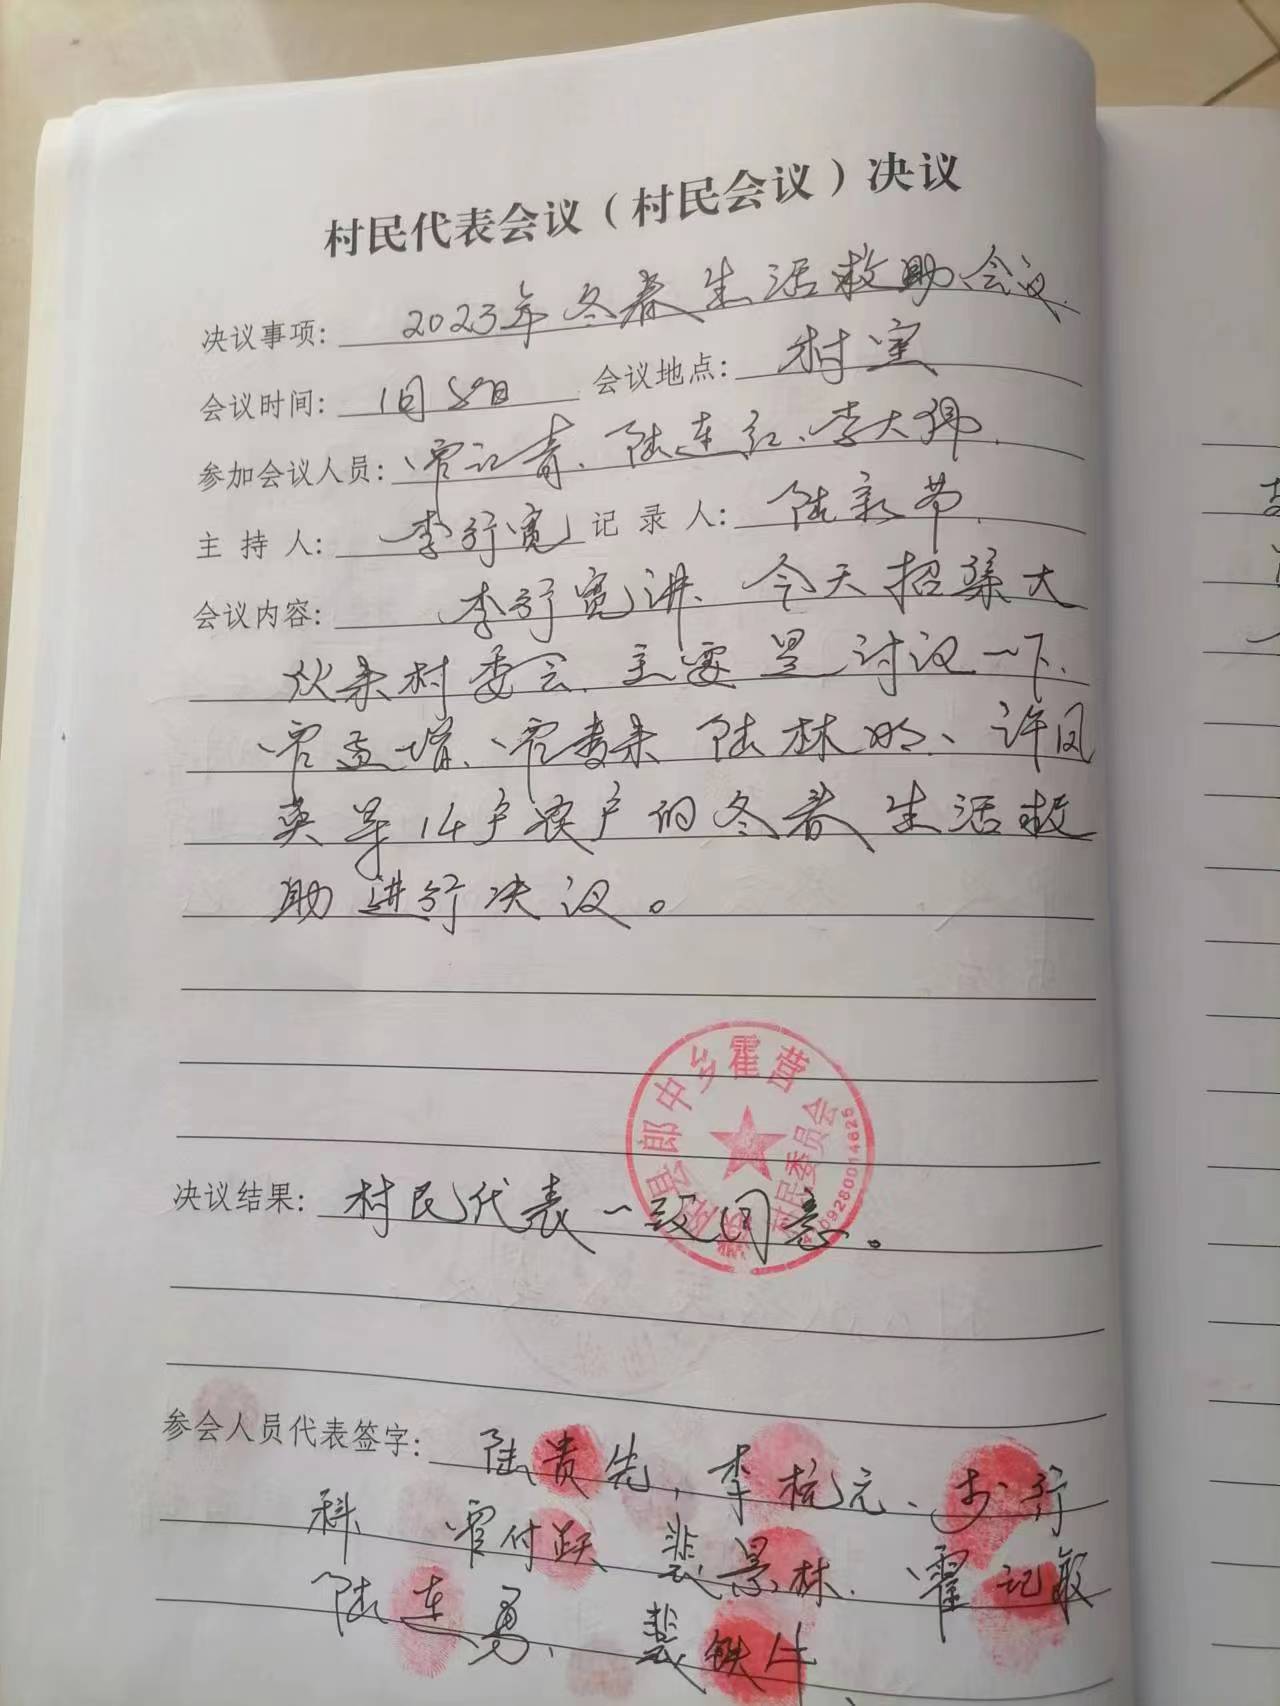 村民代表会议（村民会议）决议
决议事项： 2023年冬春生活救助会议.
会议时间： 1月 日 会议地点： 村室
参加会议人员： 霍记青、陆连红、李大
主持人： 李行宽 记录人： 陆新节.
会议内容： 李行宽讲、今天招集大
伙来村委会、主要是讨议一下、
霍孟增、霍麦来 陆林明、许凤
英等14户农户的冬春生活救
助进行决议。
郎中乡霍营
村民委员会
决议结果： 村民代表一致同意。
参会人员代表签字： 陆贵先，李 元、 行
科 霍付跃 裴景林. 霍记敏
陆连勇、裴铁牛